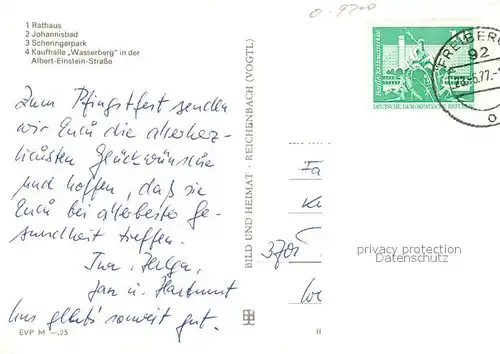 1 Rathaus
2 Johannisbad
3 Scheringerpark
4 Kaufhalle „Wasserberg" in der
Albert-Einstein-Straße
Zum Pfingstfest senden
wir Euch die allerherz-
lichsten Glückwünsche
und hoffen, daß sie
Euch bei allerbester Ge-
sundheit treffen.
Ina, Helga,
Jan u. Hartmut
Uns geht's soweit gut.
EVP M —.25
BILD UND HEIMAT · REICHENBACH (VOGTL)
0-9200
10
DEUTSCHE DEMOKRATISCHE REPUBLIK
FREIBERG
92
23.-5.77.-1
3701
privacy protection
Datenschutz